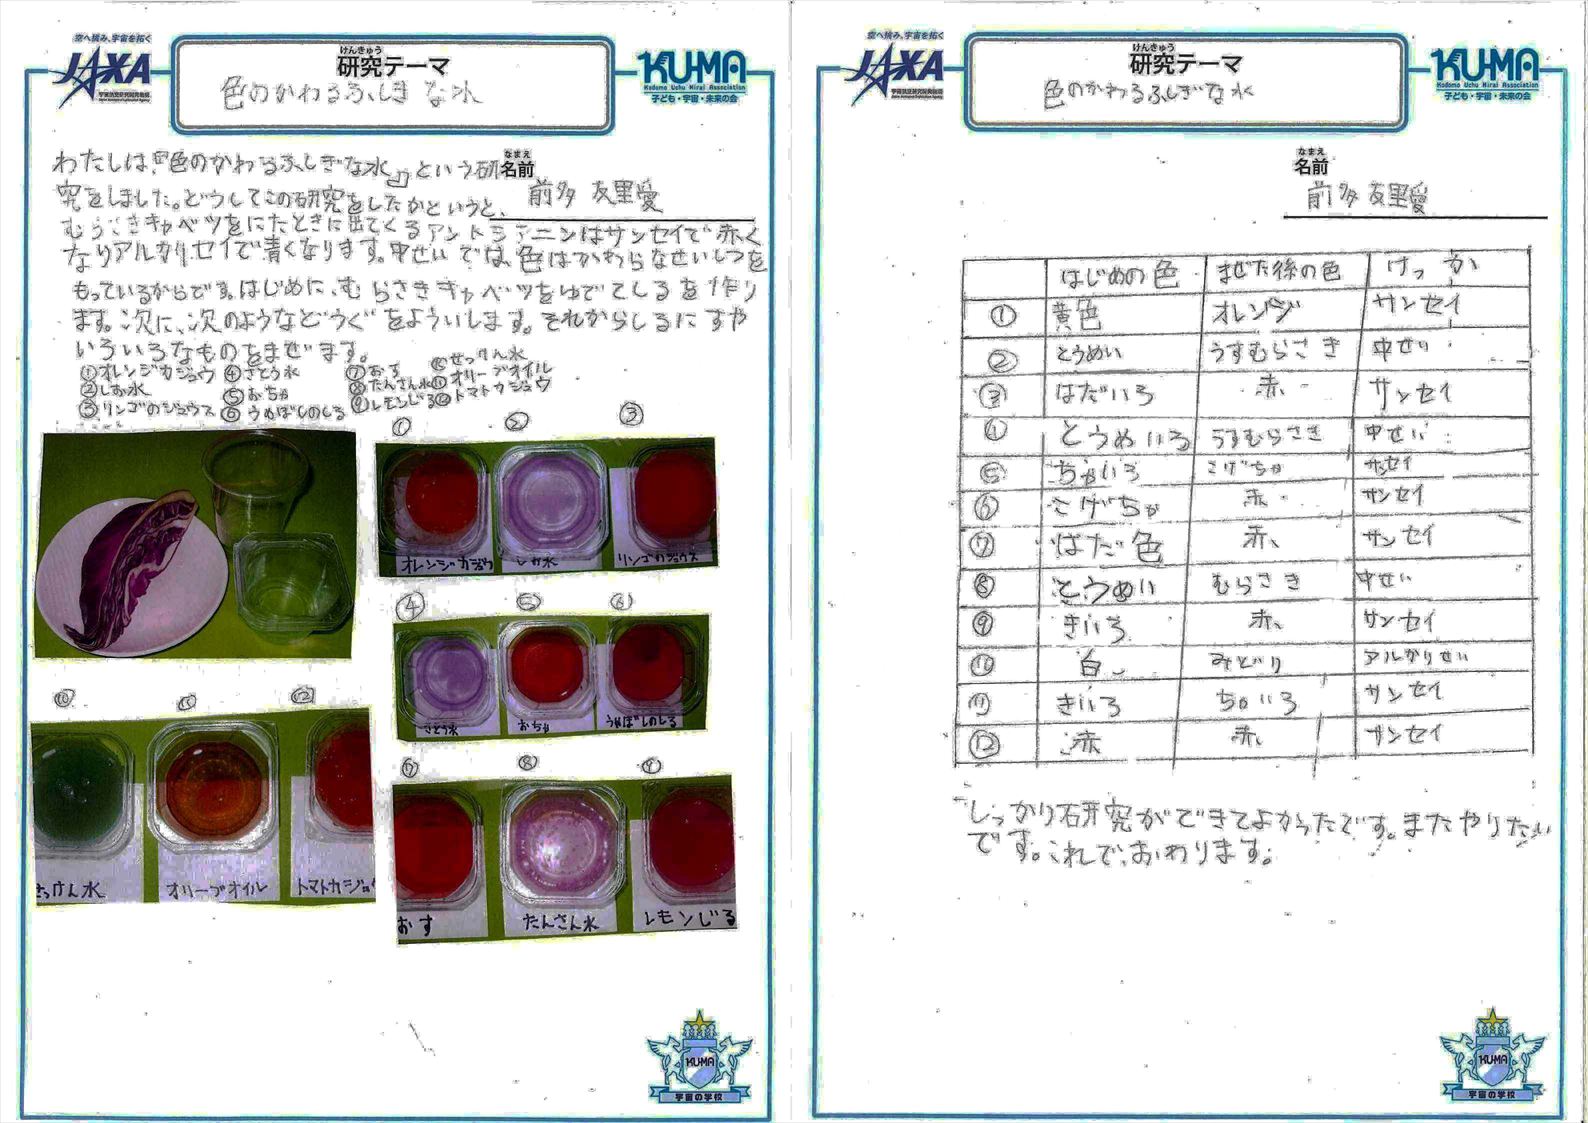 空へ挑み、宇宙を拓く
JAXA
宇宙航空研究開発機構
Japan Aerospace Exploration Agency
けんきゅう
研究テーマ
色のかわるふしぎな水
KU-MA
Kodomo Uchu Mirai Association
子ども・宇宙・未来の会
なまえ
名前
前多 友里愛
わたしは『色のかわるふしぎな水』という研
究をしました。どうしてこの研究をしたかというと、
むらさきキャベツをにたときに出てくるアントシアニンはサンセイで赤く
なりアルカリセイで青くなります。中せいでは、色はかわらなせいしつを
もっているからです。はじめに、むらさきキャベツをゆでてしるを作り
ます。次に、次のようなどうぐをよういします。それからしるにすや
いろいろなものをまぜます。
①オレンジカジュウ ④さとう水 ⑦おす ⑩せっけん水
②しお水 ⑤おちゃ ⑧たんさん水 ⑪オリーブオイル
③リンゴのジュウス ⑥うめぼしのしる ⑨レモンじる ⑫トマトカジュウ
① ② ③
オレンジカジュウ しお水 リンゴのジュウス
④ ⑤ ⑥
さとう水 おちゃ うめぼしのしる
⑩ ⑪ ⑫
せっけん水 オリーブオイル トマトカジュ
⑦ ⑧ ⑨
おす たんさん水 レモンじる
KU-MA
宇宙の学校
空へ挑み、宇宙を拓く
JAXA
宇宙航空研究開発機構
Japan Aerospace Exploration Agency
けんきゅう
研究テーマ
色のかわるふしぎな水
KU-MA
Kodomo Uchu Mirai Association
子ども・宇宙・未来の会
なまえ
名前
前多 友里愛
はじめの色 まぜた後の色 けっか
① 黄色 オレンジ サンセイ
② とうめい うすむらさき 中せい
③ はだいろ 赤 サンセイ
④ とうめいろ うすむらさき 中せい
⑤ ちゃいろ こげちゃ サンセイ
⑥ こげちゃ 赤 サンセイ
⑦ はだ色 赤 サンセイ
⑧ とうめい むらさき 中せい
⑨ きいろ 赤 サンセイ
⑩ 白 みどり アルカリせい
⑪ きいろ ちゃいろ サンセイ
⑫ 赤 赤 サンセイ
しっかり研究ができてよかったです。またやりたい
です。これで、おわります。
KU-MA
宇宙の学校